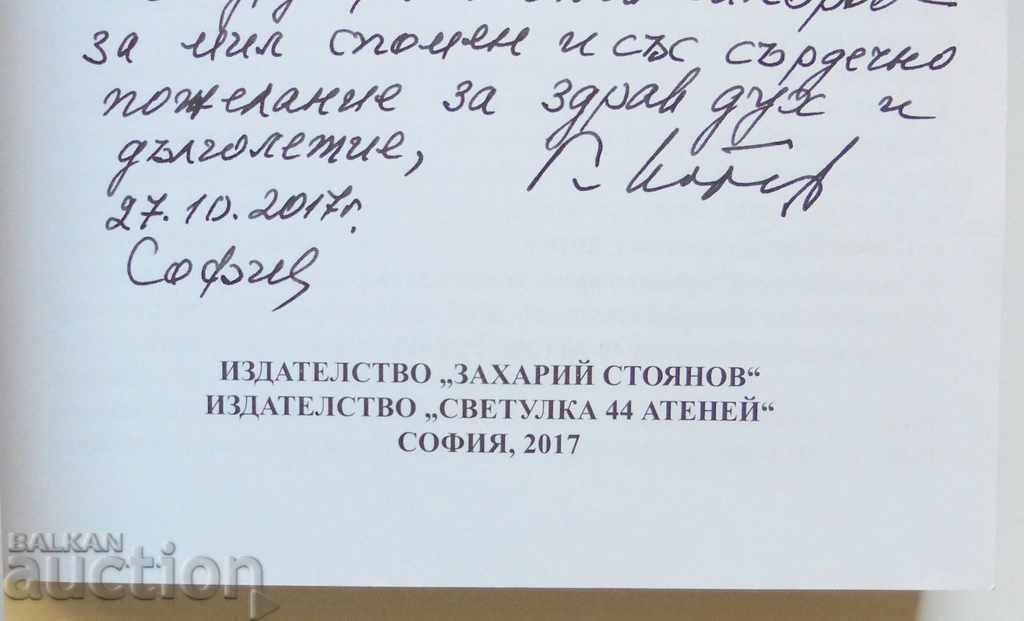 за мил спомен и със сърдечно
пожелание за здрав дух и
дълголетие,
27.10.2017г.
София
ИЗДАТЕЛСТВО „ЗАХАРИЙ СТОЯНОВ“
ИЗДАТЕЛСТВО „СВЕТУЛКА 44 АТЕНЕЙ“
СОФИЯ, 2017
BALKAN
auction